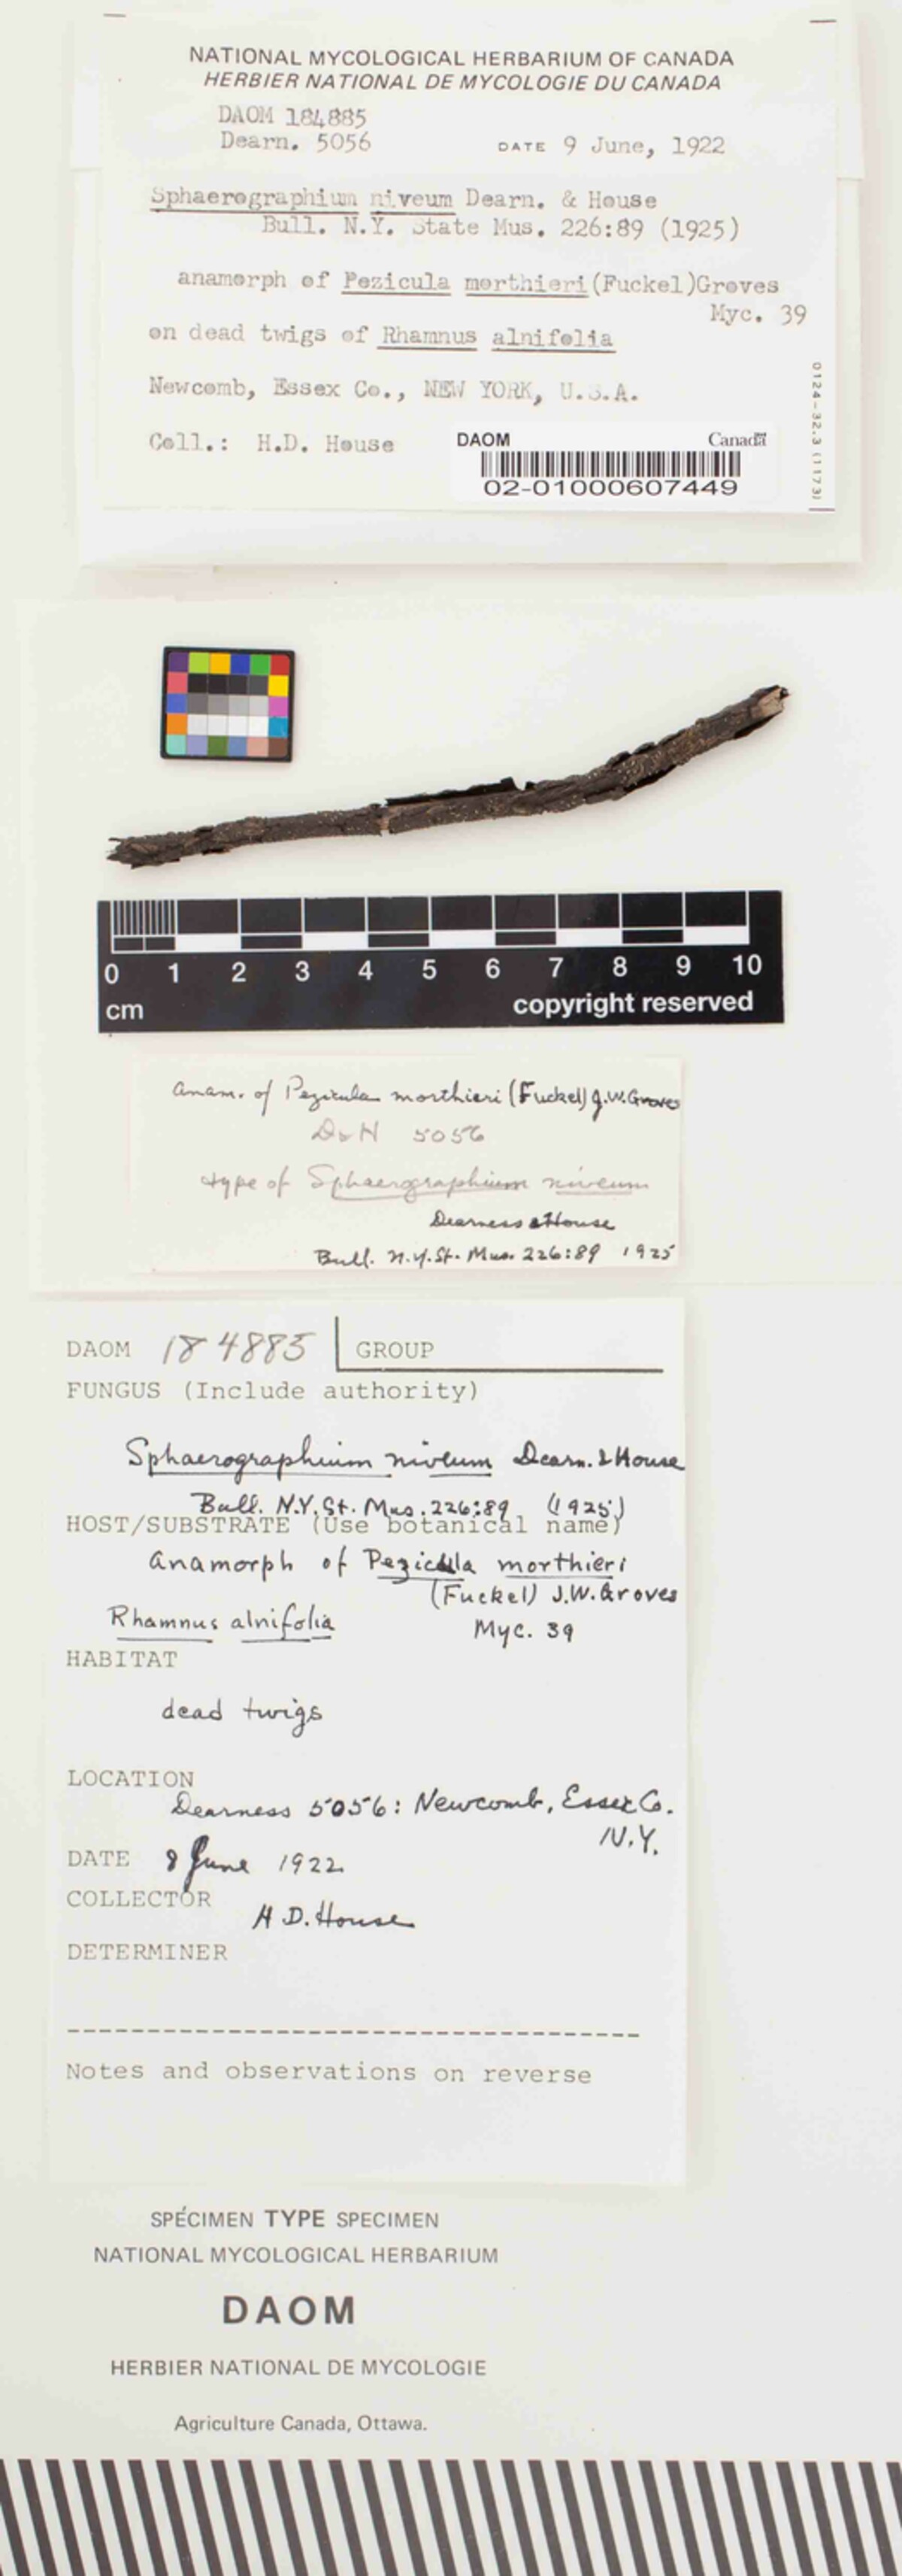 NATIONAL MYCOLOGICAL HERBARIUM OF CANADA
HERBIER NATIONAL DE MYCOLOGIE DU CANADA
DAOM 184885
Dearn. 5056 DATE 9 June, 1922
Sphaerographium niveum Dearn. & House
Bull. N.Y. State Mus. 226:89 (1925)
anamorph of Pezicula morthieri (Fuckel)Groves
Myc. 39
on dead twigs of Rhamnus alnifolia
Newcomb, Essex Co., NEW YORK, U.S.A.
Coll.: H.D. House
DAOM Canada
02-01000607449
0124-32.3 (1173)
0 1 2 3 4 5 6 7 8 9 10
cm copyright reserved
Anam. of Pezicula morthieri (Fuckel) J.W.Groves
D&H 5056
type of Sphaerographium niveum
Dearness & House
Bull. N.Y.St. Mus. 226:89 1925
DAOM 184885 GROUP
FUNGUS (Include authority)
Sphaerographium niveum Dearn. & House
Bull. N.Y.St. Mus. 226:89 (1925)
HOST/SUBSTRATE (Use botanical name)
Anamorph of Pezicula morthieri
(Fuckel) J.W.Groves
Rhamnus alnifolia Myc. 39
HABITAT
dead twigs
LOCATION
Dearness 5056: Newcomb, Essex Co.
N.Y.
DATE 9 June 1922
COLLECTOR
H.D. House
DETERMINER
Notes and observations on reverse
SPÉCIMEN TYPE SPECIMEN
NATIONAL MYCOLOGICAL HERBARIUM
DAOM
HERBIER NATIONAL DE MYCOLOGIE
Agriculture Canada, Ottawa.